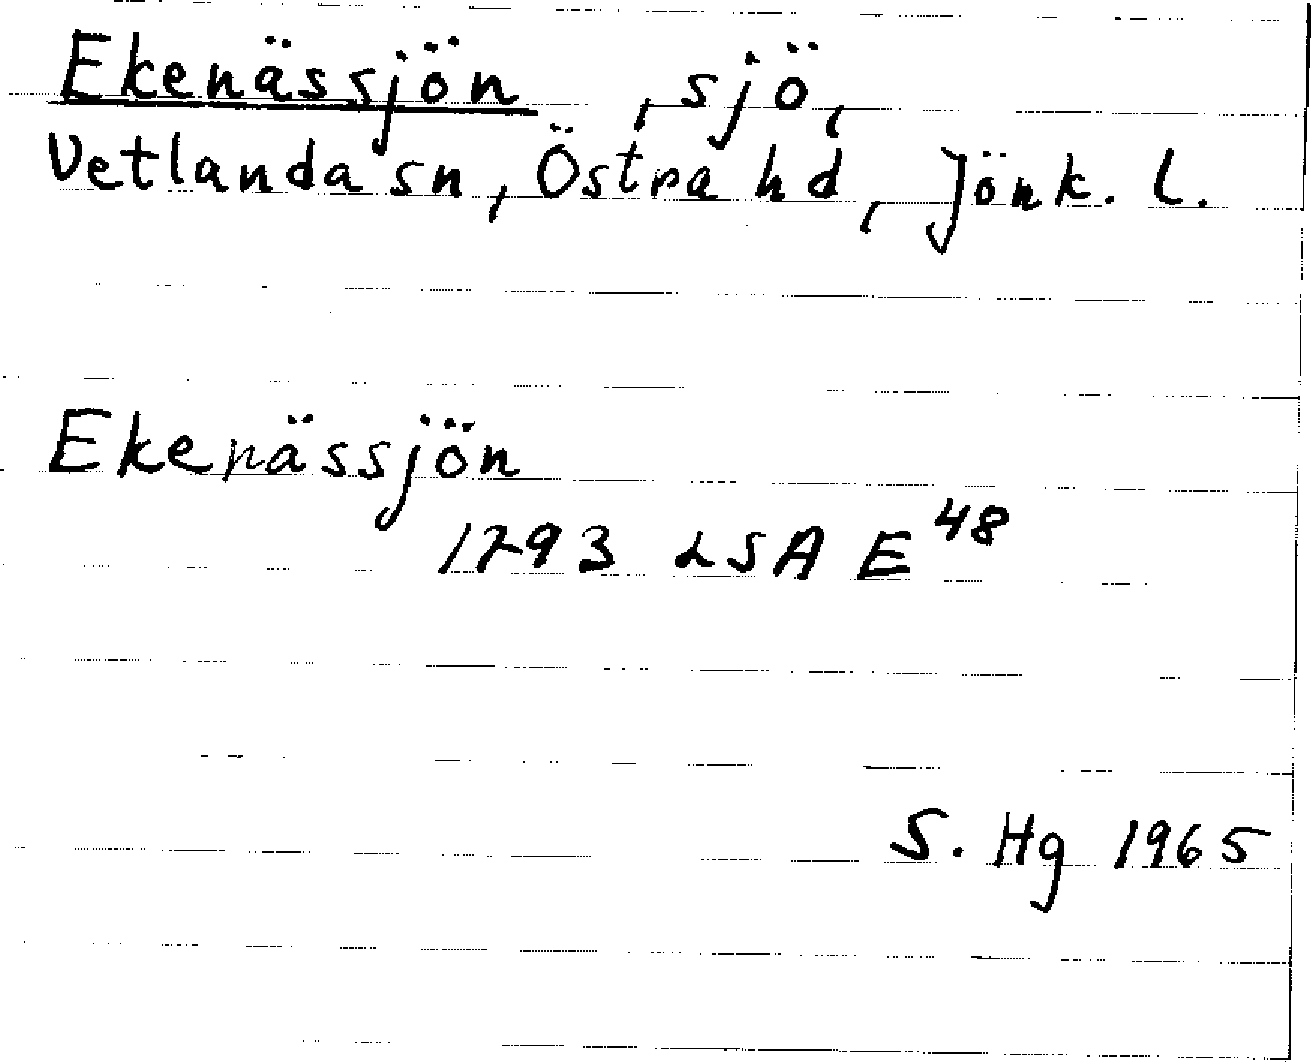 Ekenässjön, sjö,
Vetlanda sn, Östra hd, Jönk. l.
Ekenässjön
1793 LSA E 48
S. Hg 1965